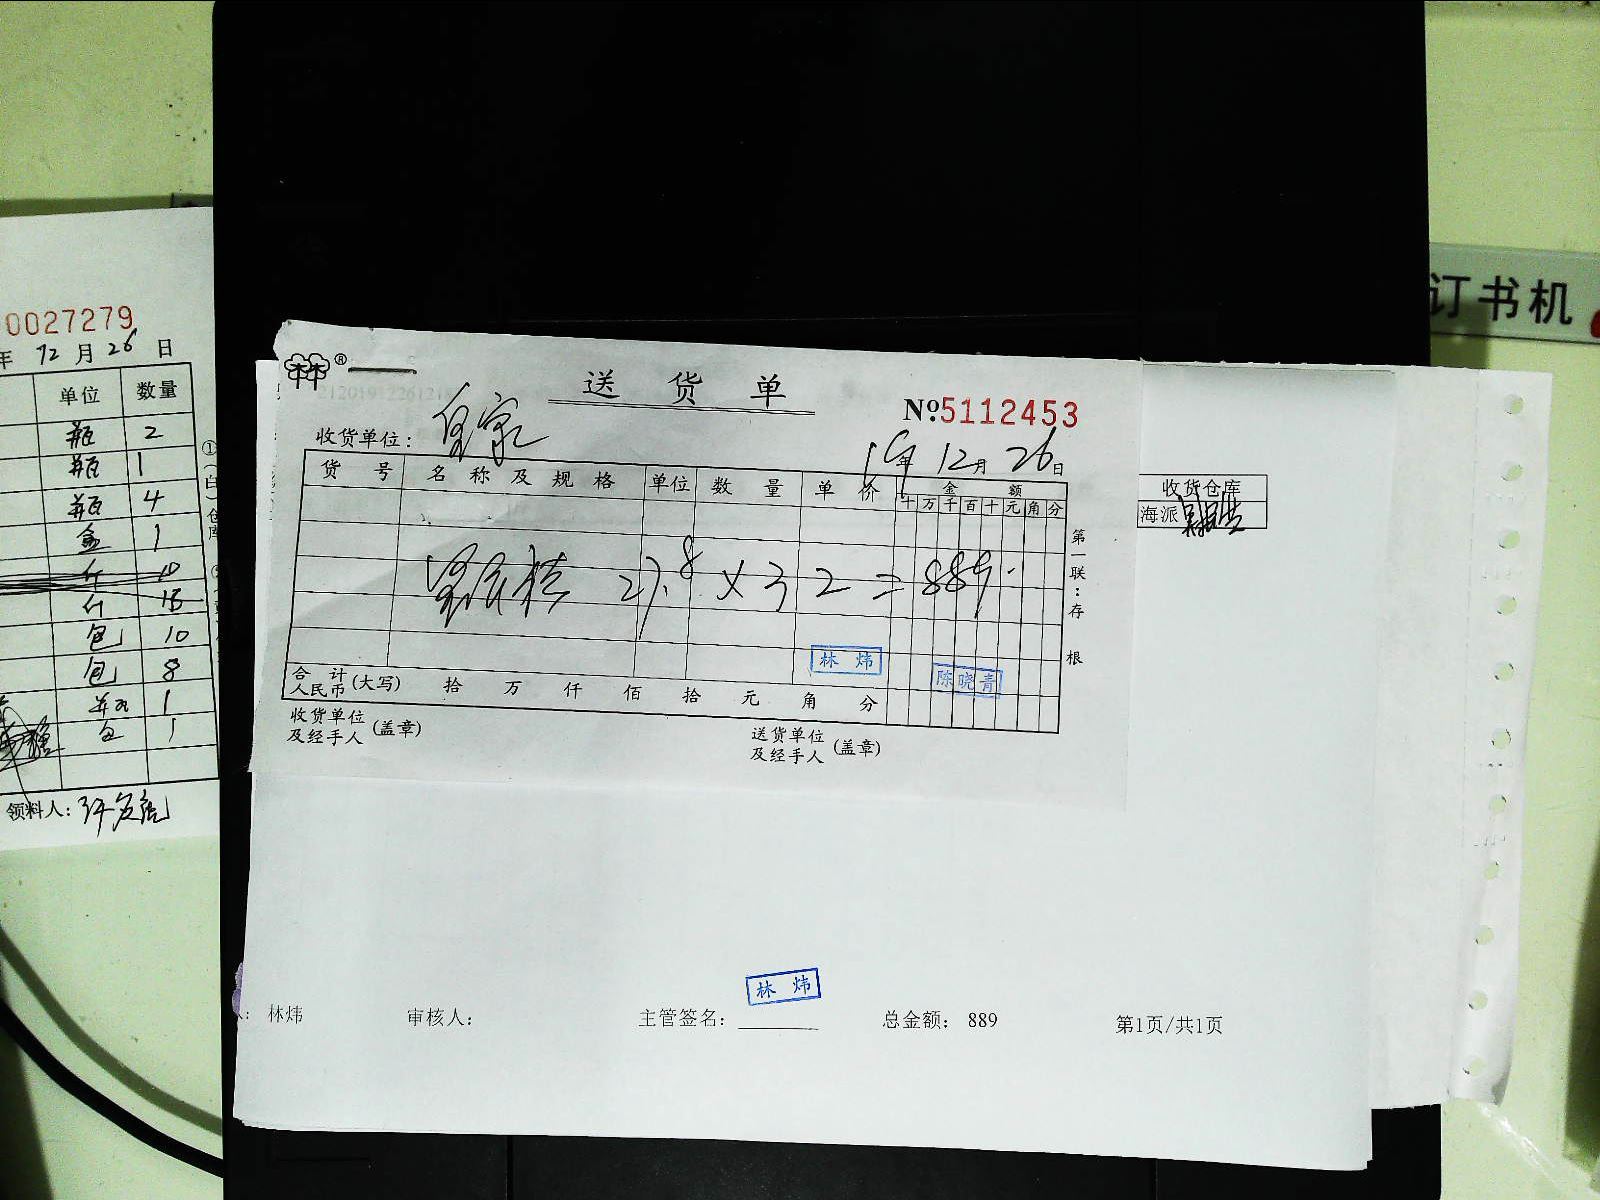 0027279
年 12 月 26 日
单位 数量
瓶 2
瓶 1
瓶 4
盒 1
斤 10
斤 15
包 10
包 8
瓶 1
包 1
①(白)仓库
领料人：
订书机
®
送货单
№5112453
收货单位： 皇家
19年 12月 26日
货号 名称及规格 单位 数量 单价 金额
十 万 千 百 十 元 角 分
27.8 × 32 = 889.
林炜
陈晓青
合计人民币(大写) 拾 万 仟 佰 拾 元 角 分
收货单位及经手人(盖章)
送货单位及经手人(盖章)
第一联：存根
收货仓库
海派
林炜
林炜 审核人： 主管签名： 总金额： 889 第1页/共1页